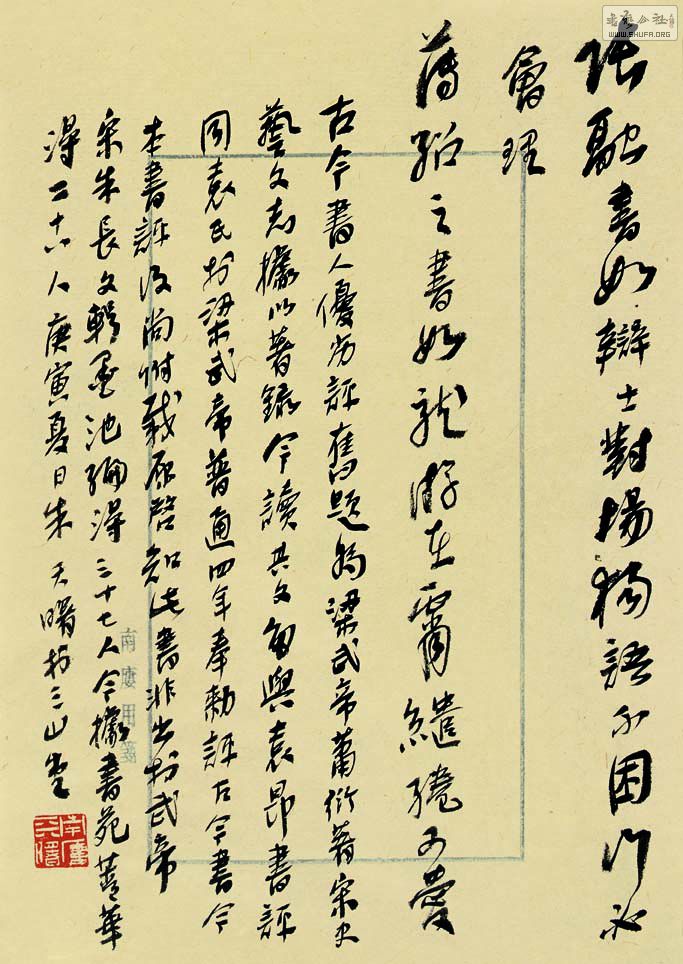 張融書如辯士對揚獨語不困行必
會理
薄紹之書如龍游在霄繾綣可愛
古今書人優劣評舊題為梁武帝蕭衍著宋史
藝文志據以著錄今讀其文句與袁昂書評
同袁氏於梁武帝普通四年奉勅評古今書今
本書評後尚附載原啓知此書非出於武帝
宋朱長文輯墨池編得三十七人今據書苑菁華
得二十六人庚寅夏日朱天曙於三山堂
南廔用箋
書法公社
WWW.SHUFA.ORG